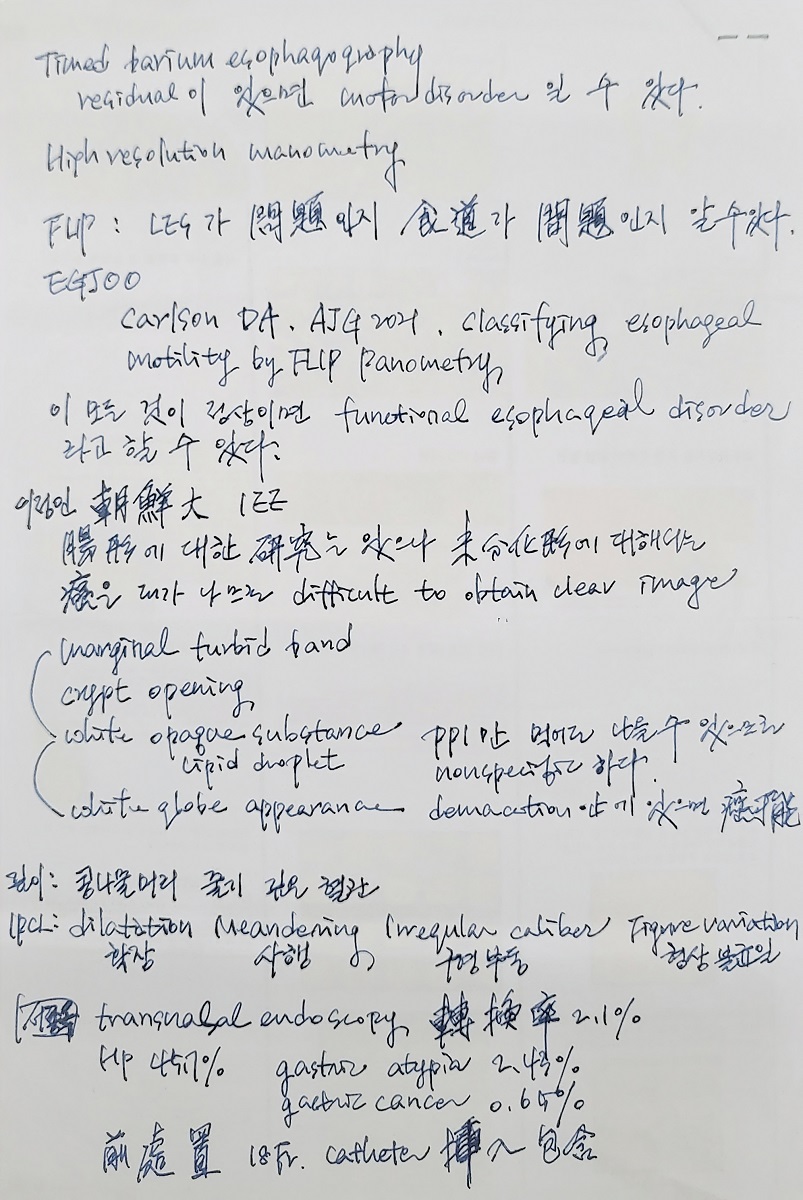 Timed barium esophagography
residual이 있으면 motor disorder 일 수 있다.
High resolution manometry
FLIP : LES가 問題인지 食道가 問題인지 알 수 있다.
EGJOO
Carlson DA. AJG 2021. classifying esophageal
motility by FLIP Panometry
이 모든 것이 정상이면 functional esophageal disorder
라고 할 수 있다.
朝鮮大 IEE
腸形에 대한 研究는 있으나 未分化形에 대해서는
癌은 대가 나므로 difficult to obtain clear image
marginal turbid band
crypt opening
white opaque substance PPI만 먹어도 나올 수 있으므로
lipid droplet nonspecific 하다.
white globe appearance demacation 안에 있으면 癌可能
콩나물머리 줄기 혈관
IPCL: dilatation Meandering Irregular caliber Figure variation
확장 사행 구경부동 형상 불균일
transnasal endoscopy 轉換率 2.1%
HP 45.7% gastric atypia 2.43%
gastric cancer 0.65%
前處置 18Fr. catheter 挿入 包含